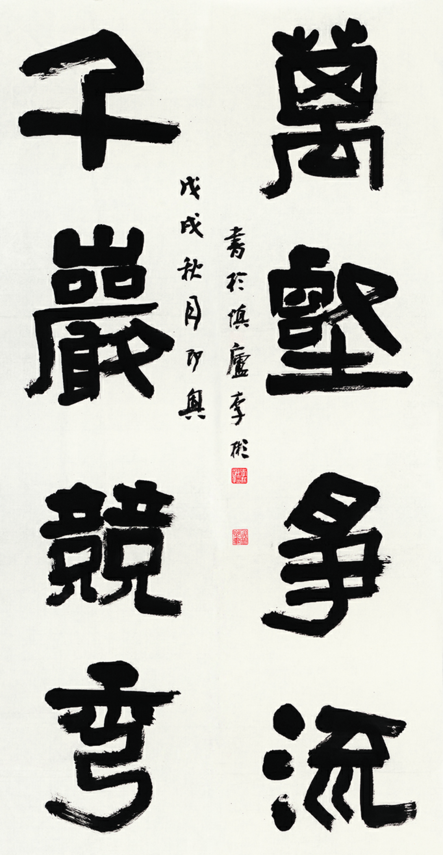 萬壑爭流
千巖競秀
戊戌秋月即興
書於慎廬李彬